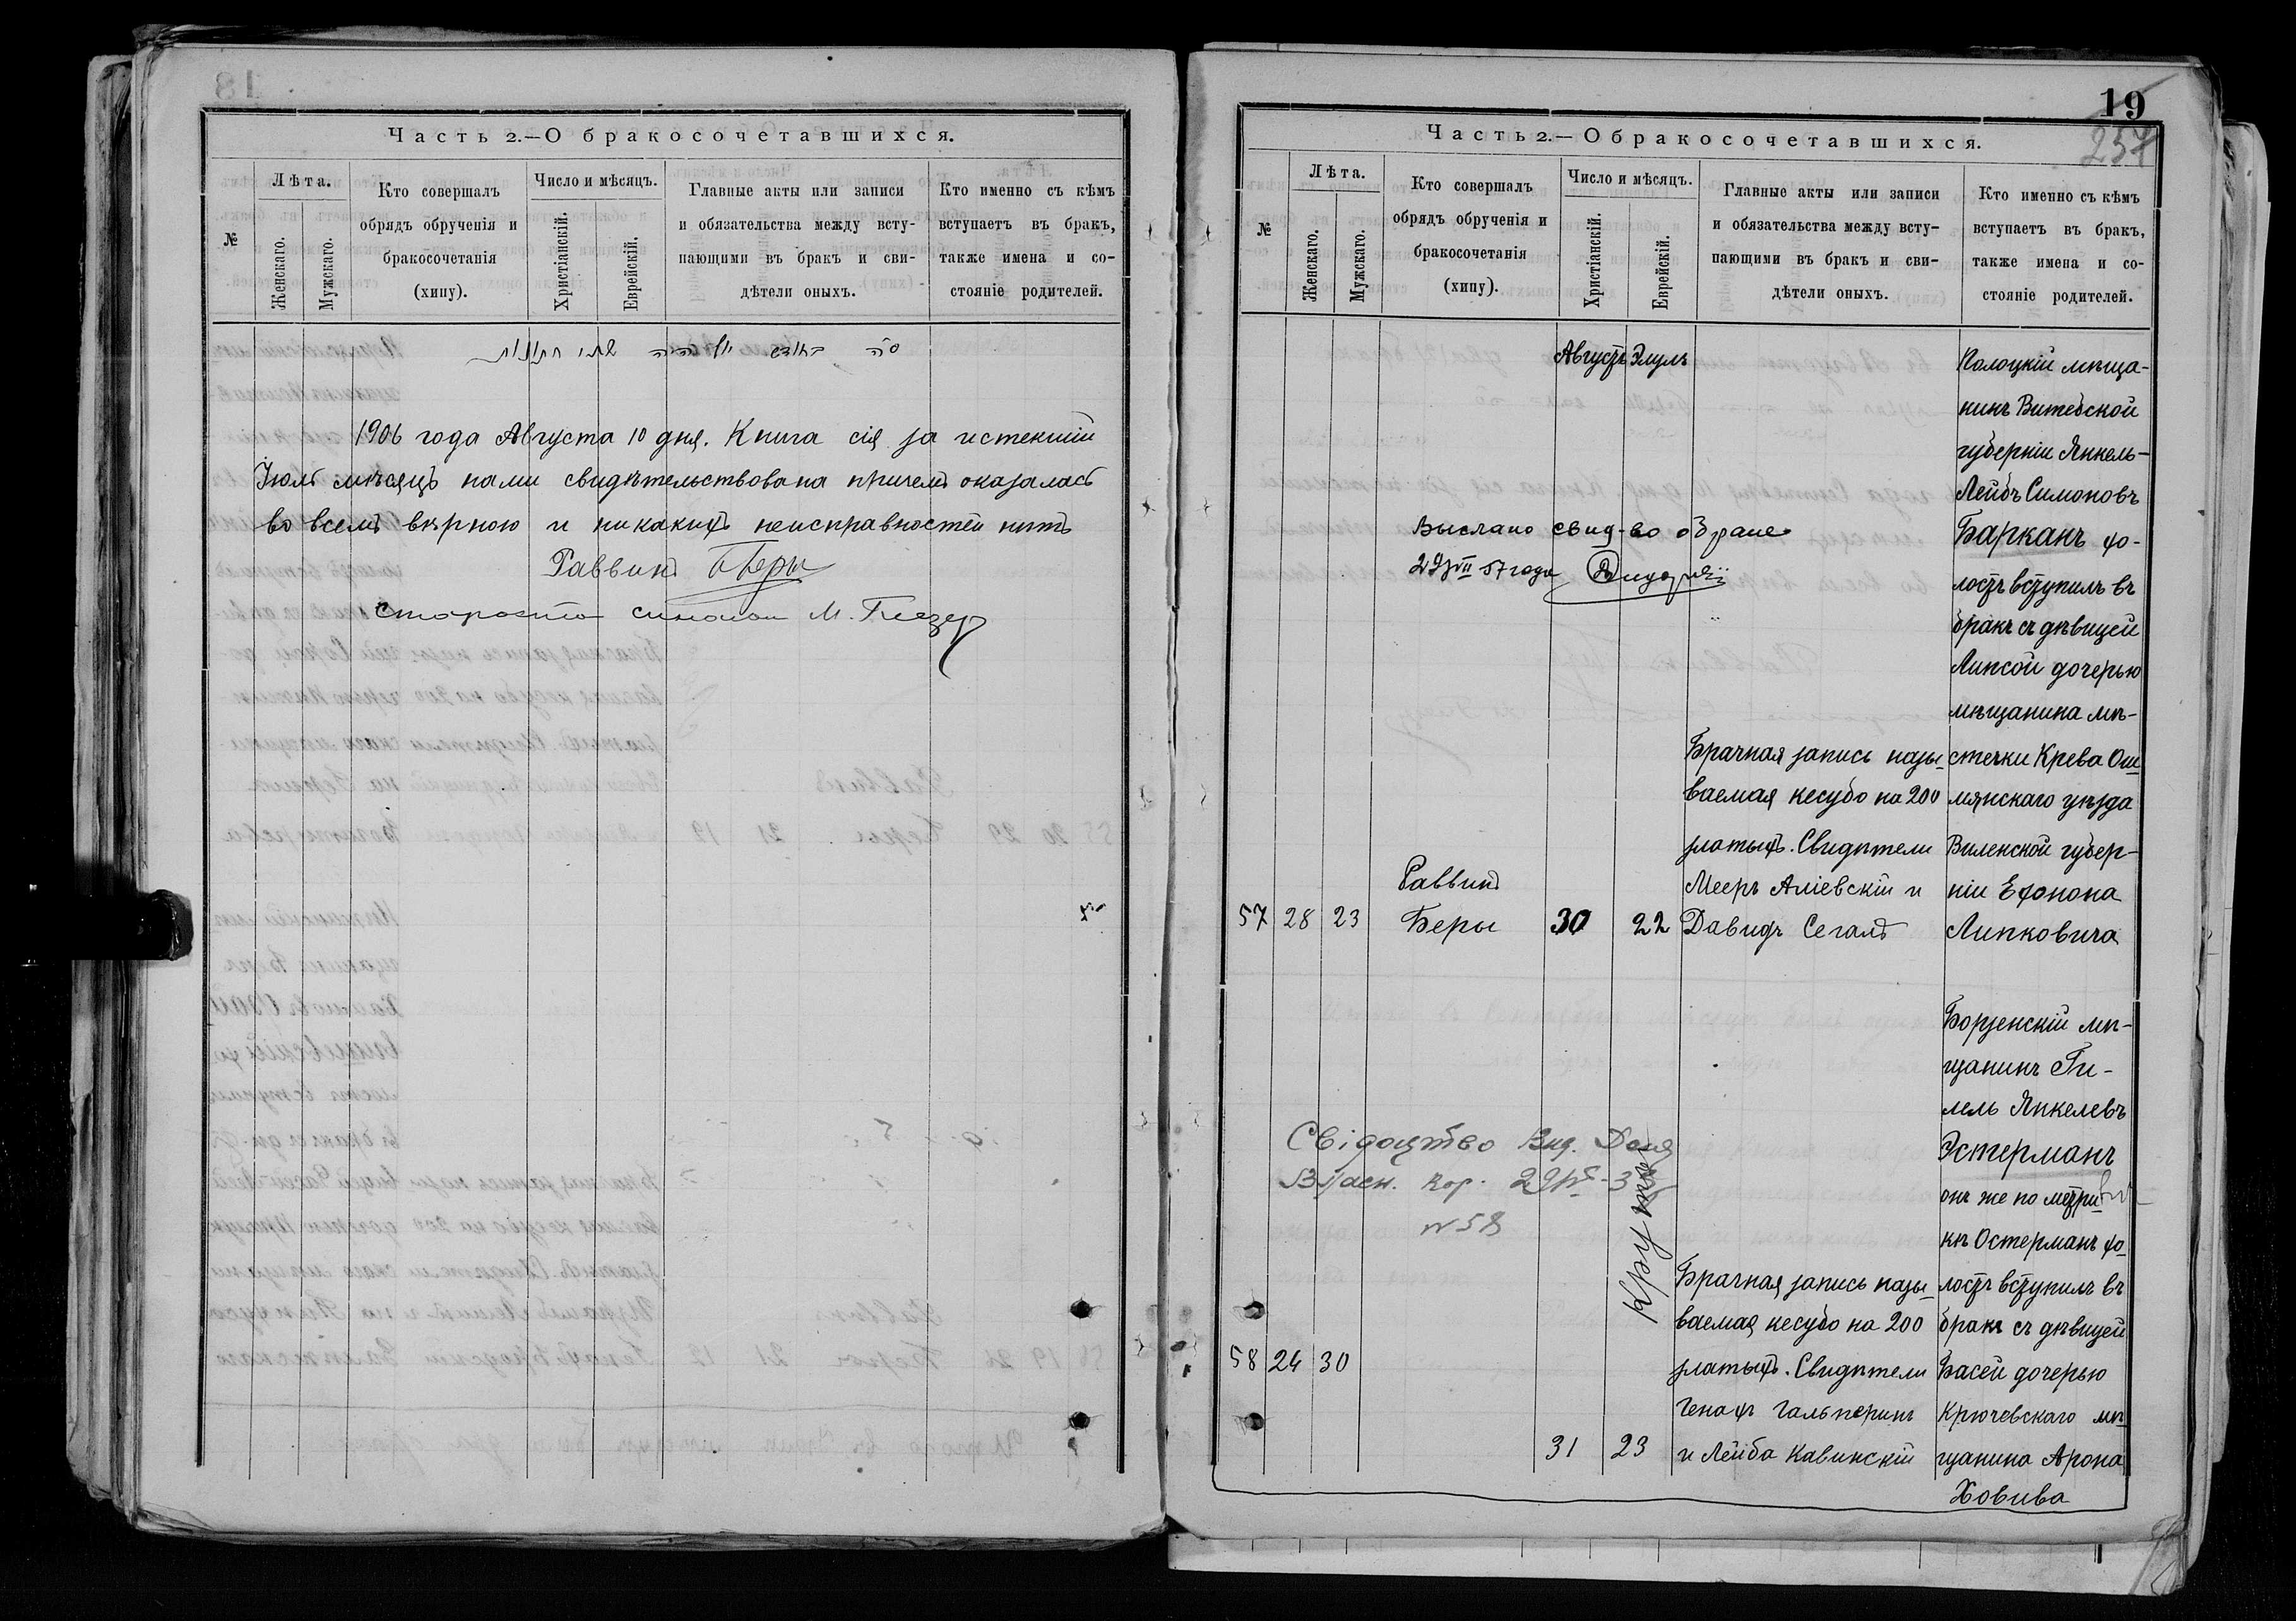 Часть 2.—О бракосочетавшихся.
№
Лѣта.
Женскаго.
Мужскаго.
Кто совершалъ
обрядъ обрученія и
бракосочетанія
(хипу).
Число и мѣсяцъ.
Христіанскій.
Еврейскій.
Главные акты или записи
и обязательства между всту-
пающими въ бракъ и сви-
дѣтели оныхъ.
Кто именно съ кѣмъ
вступаетъ въ бракъ,
также имена и со-
стояніе родителей.
1906 года Августа 10 дня. Книга сія за истекшій
Іюль мѣсяцъ нами свидѣтельствована причемъ оказалась
во всемъ вѣрною и никакихъ неисправностей нитъ
Раввинъ Беры
Староста М.
19
257
Часть 2.—О бракосочетавшихся.
№
Лѣта.
Женскаго.
Мужскаго.
Кто совершалъ
обрядъ обрученія и
бракосочетанія
(хипу).
Число и мѣсяцъ.
Христіанскій.
Еврейскій.
Главные акты или записи
и обязательства между всту-
пающими въ бракъ и сви-
дѣтели оныхъ.
Кто именно съ кѣмъ
вступаетъ въ бракъ,
также имена и со-
стояніе родителей.
Августъ Элулъ
Выслано свид-во о браке
29/VII 57 года
57 28 23
Раввинъ
Беры
30 22
Брачная запись назы-
ваемая кесубо на 200
златыхъ. Свидѣтели
Мееръ Аліевскій и
Давидъ Сегалъ
Полоцкій мѣща-
нинъ Витебской
губерніи Янкель-
Лейбъ Симоновъ
Барканъ хо-
лостъ вступилъ въ
бракъ съ дѣвицей
Липсой дочерью
мѣщанина мѣ-
стечки Крева Ош-
мянскаго уѣзда
Виленской губер-
ніи Ефонона
Липковича
Свідоцтво Вид. Доня
Власн. кор.
N 58
Крутое
58 24 30
31 23
Брачная запись назы-
ваемая кесубо на 200
златыхъ. Свидѣтели
Генахъ Гальперинъ
и Лейба Кавинскій
Борзенскій мѣ-
щанинъ Ги-
лель Янкелевъ
Эстерманъ
онъ же по метри-
кѣ Остерманъ хо-
лостъ вступилъ въ
бракъ съ дѣвицей
Басей дочерью
Крючевскаго мѣ-
щанина Арона
Ховива